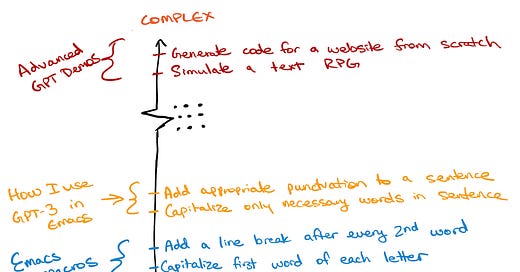 COMPLEX
Advanced
GPT Demos
Generate code for a website from scratch
Simulate a text RPG
How I use
GPT-3 in
Emacs
Add appropriate punctuation to a sentence
Capitalize only necessary words in sentence
Emacs
macros
Add a line break after every 2nd word
Capitalize first word of each letter